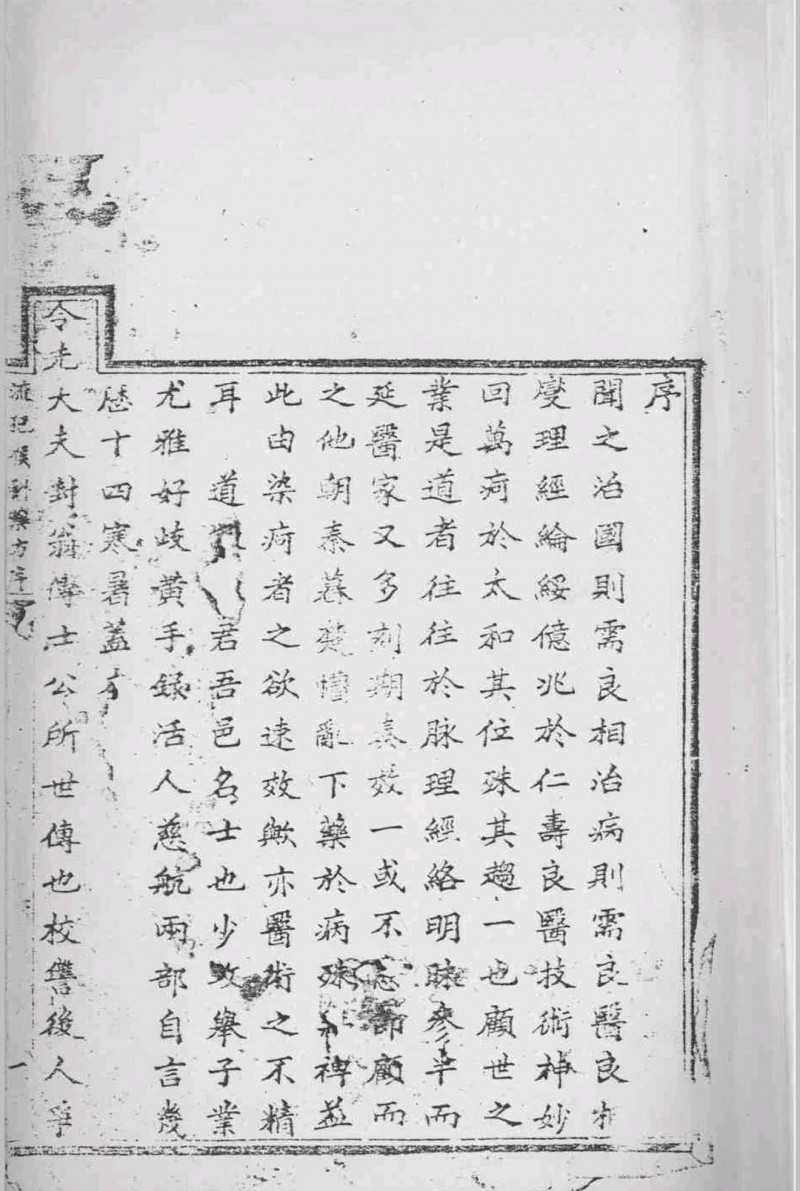 序
聞之治國則需良相治病則需良醫良相
燮理經綸綏億兆於仁壽良醫技術神妙
回萬疴於太和其位殊其趨一也顧世之
業是道者往往於脉理經絡明昧參半而
延醫家又多刻期奏效一或不 卽顧而
之他朝秦暮楚懵亂下藥於病殊 裨益
此由染疴者之欲速效歟亦醫術之不精
耳 道 君吾邑名士也少攻舉子業
尤雅好歧黃手録活人慈航兩部自言幾
歷十四寒暑蓋
令先大夫封翁 士公所世傳也校讐後人爭
科藥方序
一